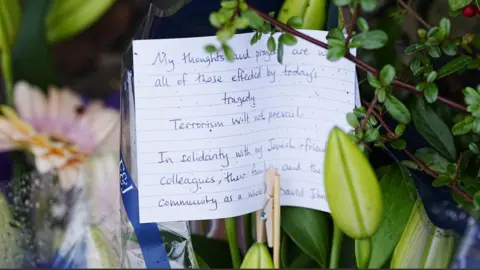 My thoughts and prayers are w
all of those effected by today's
tragedy
Terrorism will not prevail.
In solidarity with my Jewish frie
colleagues, their fam and the
community as a whole David John